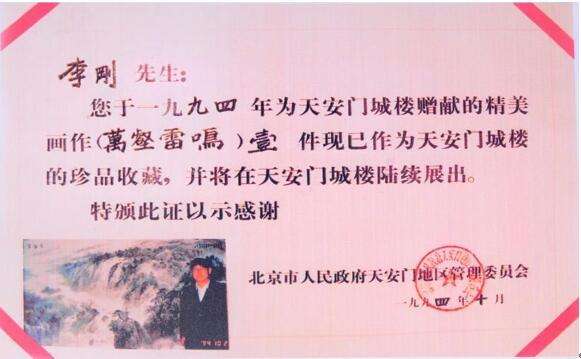 李剛 先生:
您于一九九四年为天安门城楼赠献的精美
画作(萬壑雷鳴)壹 件现已作为天安门城楼
的珍品收藏，并将在天安门城楼陆续展出。
特颁此证以示感谢
北京市人民政府天安门地区管理委员会
一九九四年十月
'94 10 2